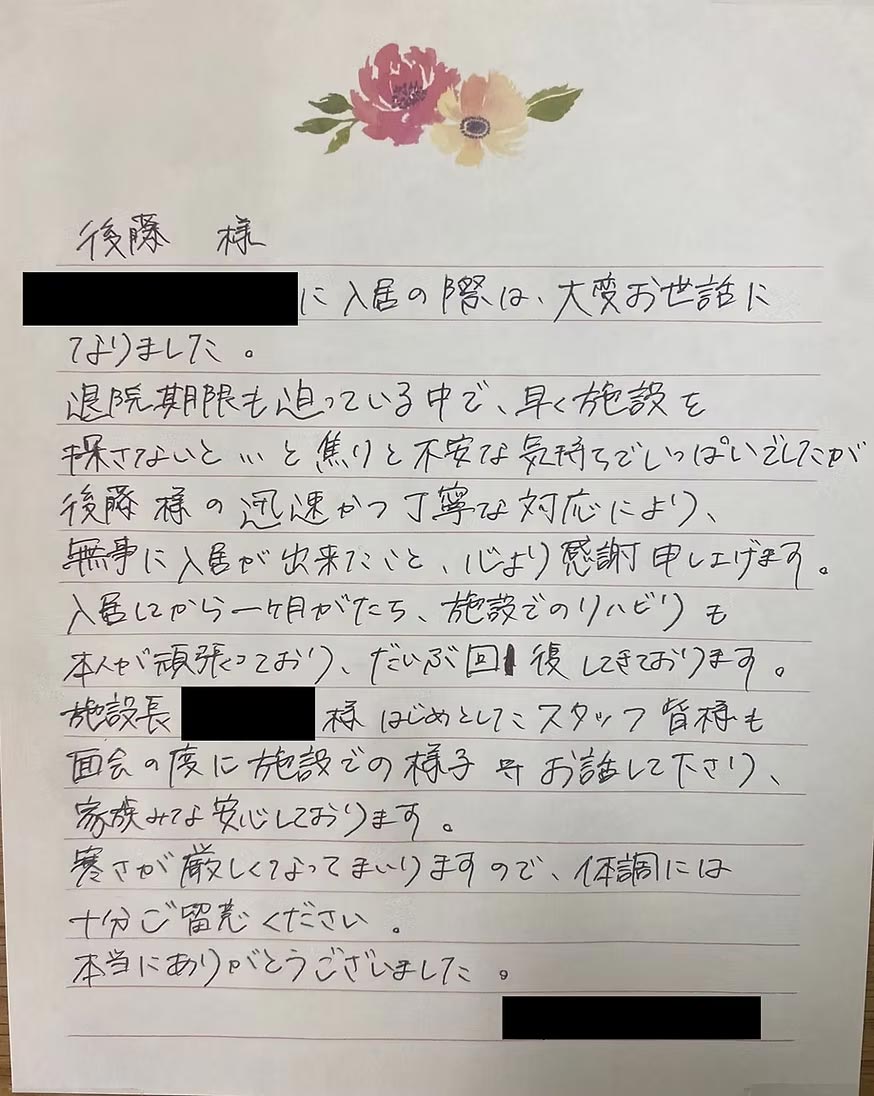 後藤 様
に入居の際は、大変お世話に
なりました。
退院期限も迫っている中で、早く施設を
探さないと…と焦りと不安な気持ちでいっぱいでしたが
後藤様の迅速かつ丁寧な対応により、
無事に入居が出来たこと、心より感謝申し上げます。
入居してから一ヶ月がたち、施設でのリハビリも
本人が頑張っており、だいぶ回復してきております。
施設長 様はじめとしたスタッフ皆様も
面会の度に施設での様子 お話して下さり、
家族みな安心しております。
寒さが厳しくなってまいりますので、体調には
十分ご留意ください。
本当にありがとうございました。